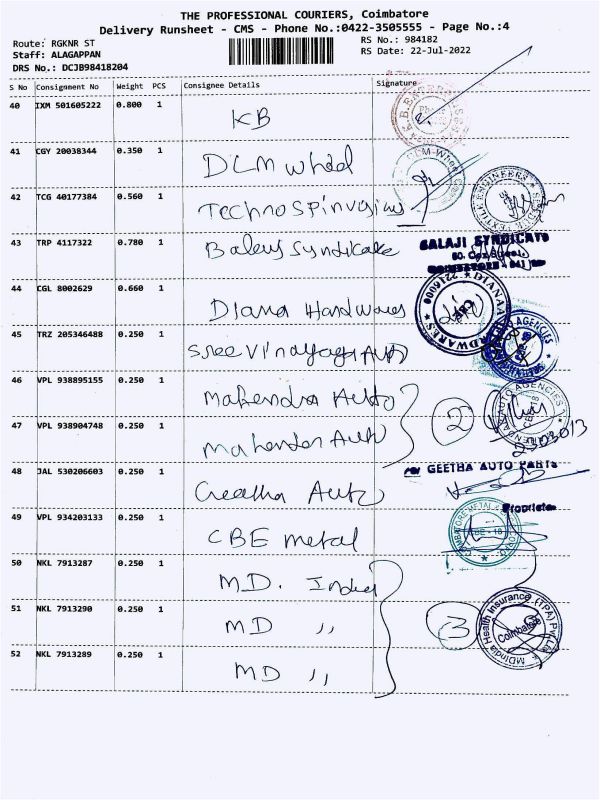 THE PROFESSIONAL COURIERS, Coimbatore
Delivery Runsheet - CMS - Phone No.:0422-3505555 - Page No.:4
Route: RGKNR ST
Staff: ALAGAPPAN
DRS No.: DCJB98418204
RS No.: 984182
RS Date: 22-Jul-2022
S No Consignment No Weight PCS Consignee Details Signature
40 IXM 501605222 0.800 1 KB
41 CGY 20038344 0.350 1 DLM Wheel
42 TCG 40177384 0.560 1 Technospin
43 TRP 4117322 0.780 1 Syndicate
BALAJI SYNDICATE
44 CGL 8002629 0.660 1 Diana Hardwares
DIANA HARDWARES * 2216000
45 TRZ 205346488 0.250 1 Sree Vinayaga Auto
AGENCIES
46 VPL 938895155 0.250 1 Mahendra Auto
2
AUTO AGENCIES
47 VPL 938904748 0.250 1 Mahender Auto
2303013
48 JAL 530206603 0.250 1 Geetha Auto
For GEETHA AUTO PARTS
Proprietor
49 VPL 934203133 0.250 1 CBE metal
COIMBATORE METAL
50 NKL 7913287 0.250 1 MD. India
51 NKL 7913290 0.250 1 MD ,,
3
MDIndia Health Insurance (TPA) Pvt. Ltd.
Coimbatore
52 NKL 7913289 0.250 1 MD ,,